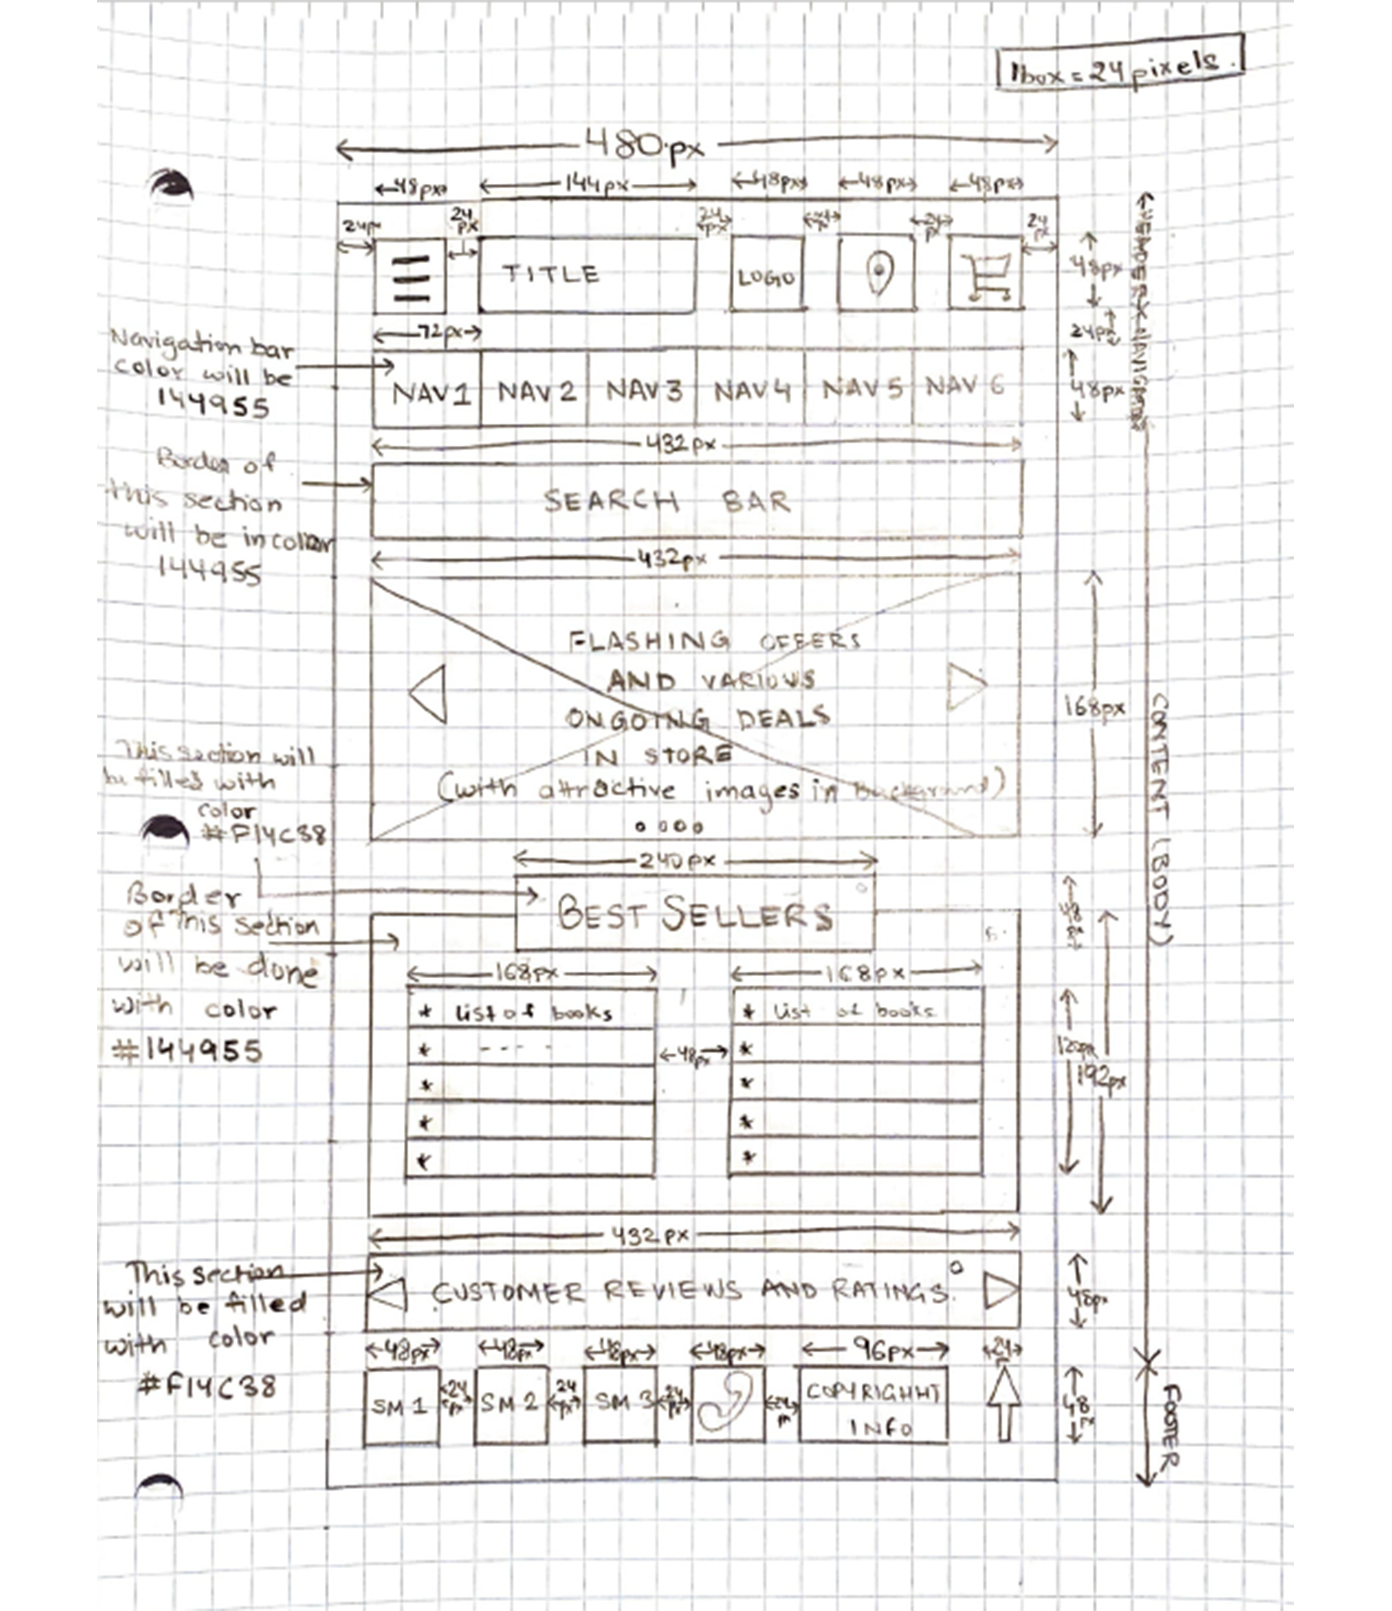 1box = 24 pixels.
480px
48px 144px 48px 48px 48px
24px 24px 24px 24px
TITLE LOGO
48px
72px
24px
Navigation bar
color will be
144955
NAV 1 NAV 2 NAV 3 NAV 4 NAV 5 NAV 6
48px
432px
Border of
this section
will be in color
144955
SEARCH BAR
432px
FLASHING OFFERS
AND VARIOUS
ONGOING DEALS
IN STORE
(with attractive images in Background)
168px
CONTENT (BODY)
This section will
be filled with
color
#F14C38
240px
BEST SELLERS
48px
Border
of this section
will be done
with color
#144955
168px 168px
* list of books * list of books
* - - - - *
48px
* *
* *
* *
120px
192px
432px
This section
will be filled
with color
#F14C38
CUSTOMER REVIEWS AND RATINGS.
48px
48px 48px 48px 48px 96px 24
SM 1 24px SM 2 24px SM 3 24px COPYRIGHHT
INFO
48px
FOOTER